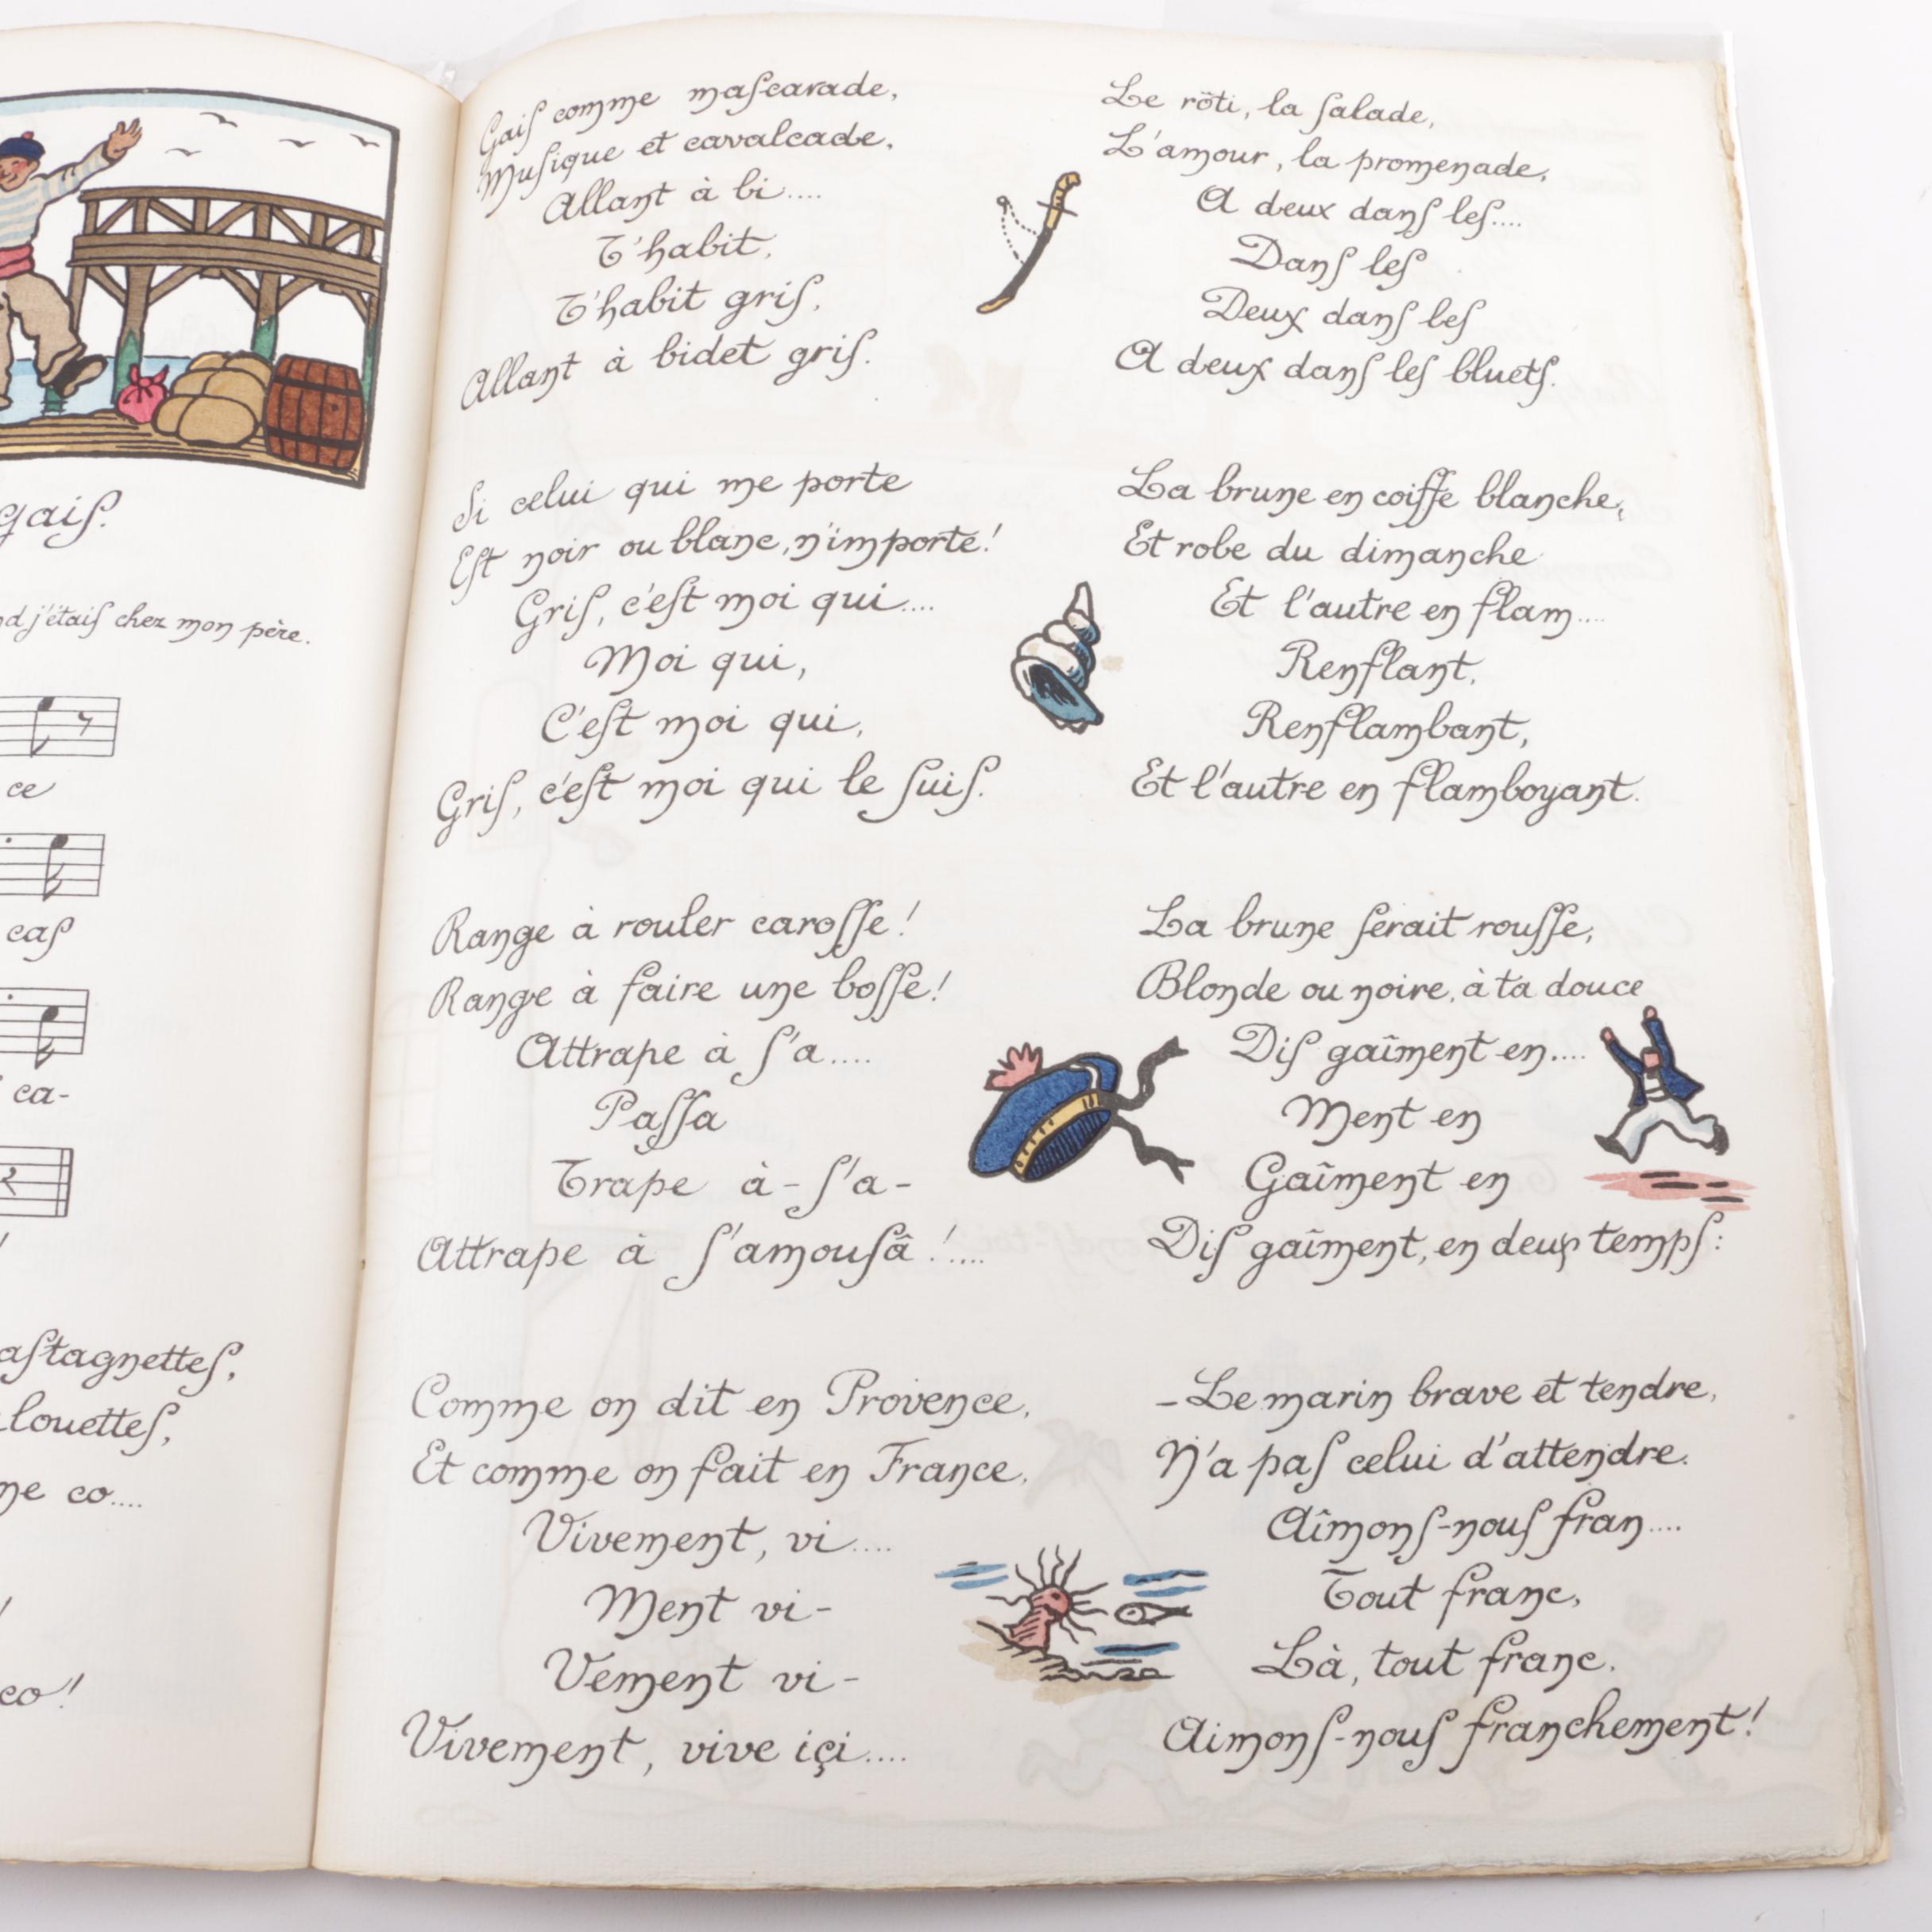 gais.
j'étais chez mon père.
ce
cas
ca-
astagnettes,
louettes,
co....
co!
Gais comme mascarade,
Musique et cavalcade,
Allant à bi....
T'habit,
T'habit gris,
Allant à bidet gris.
Si celui qui me porte
Est noir ou blanc, n'importe!
Gris, c'est moi qui....
Moi qui,
C'est moi qui,
Gris, c'est moi qui le suis.
Range à rouler carosse!
Range à faire une bosse!
Attrape à s'a....
Passa
Trape à-s'a-
Attrape à s'amousâ!....
Comme on dit en Provence,
Et comme on fait en France,
Vivement, vi....
Ment vi-
Vement vi-
Vivement, vive içi....
Le rôti, la salade,
L'amour, la promenade,
A deux dans les....
Dans les
Deux dans les
A deux dans les bluets.
La brune en coiffe blanche,
Et robe du dimanche
Et l'autre en flam....
Renflant,
Renflambant,
Et l'autre en flamboyant.
La brune serait rousse,
Blonde ou noire, à ta douce
Dis gaîment en....
Ment en
Gaîment en
Dis gaîment, en deux temps:
-Le marin brave et tendre,
N'a pas celui d'attendre.
Aîmons-nous fran....
Tout franc,
Là, tout franc.
Aimons-nous franchement!